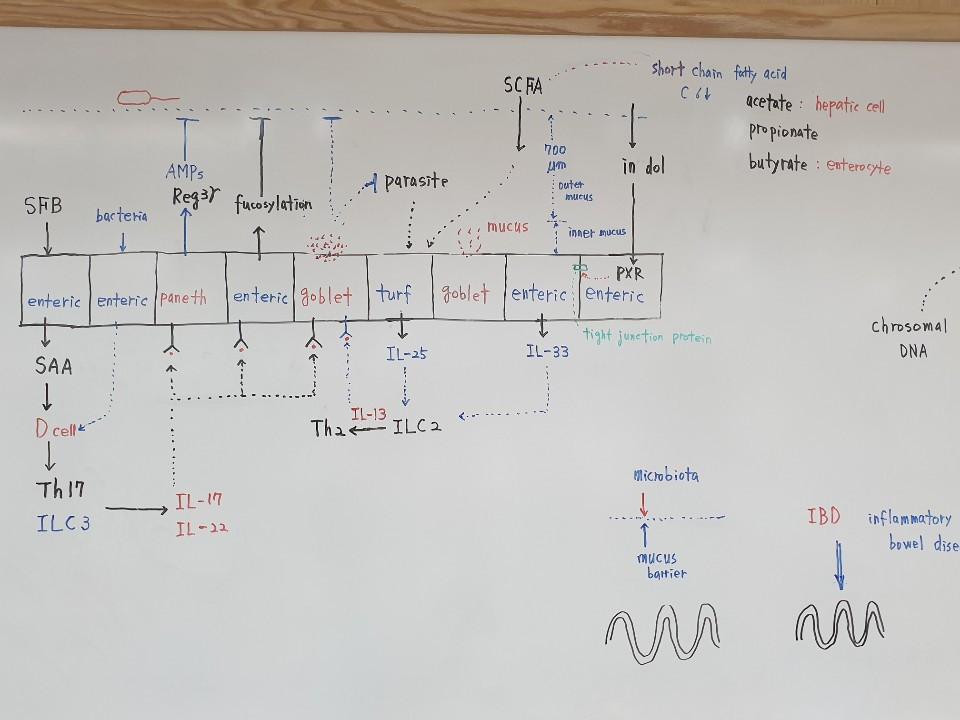 SCFA
short chain fatty acid
C 6↓
acetate : hepatic cell
propionate
butyrate : enterocyte
AMPs
Reg3γ
fucosylation
parasite
700
μm
outer
mucus
inner mucus
in dol
SFB
bacteria
mucus
PXR
enteric
enteric
paneth
enteric
goblet
turf
goblet
enteric
enteric
tight junction protein
SAA
D cell
Th17
ILC3
IL-17
IL-22
IL-25
IL-33
IL-13
Th2
ILC2
chrosomal
DNA
microbiota
mucus
barrier
IBD
inflammatory
bowel dise